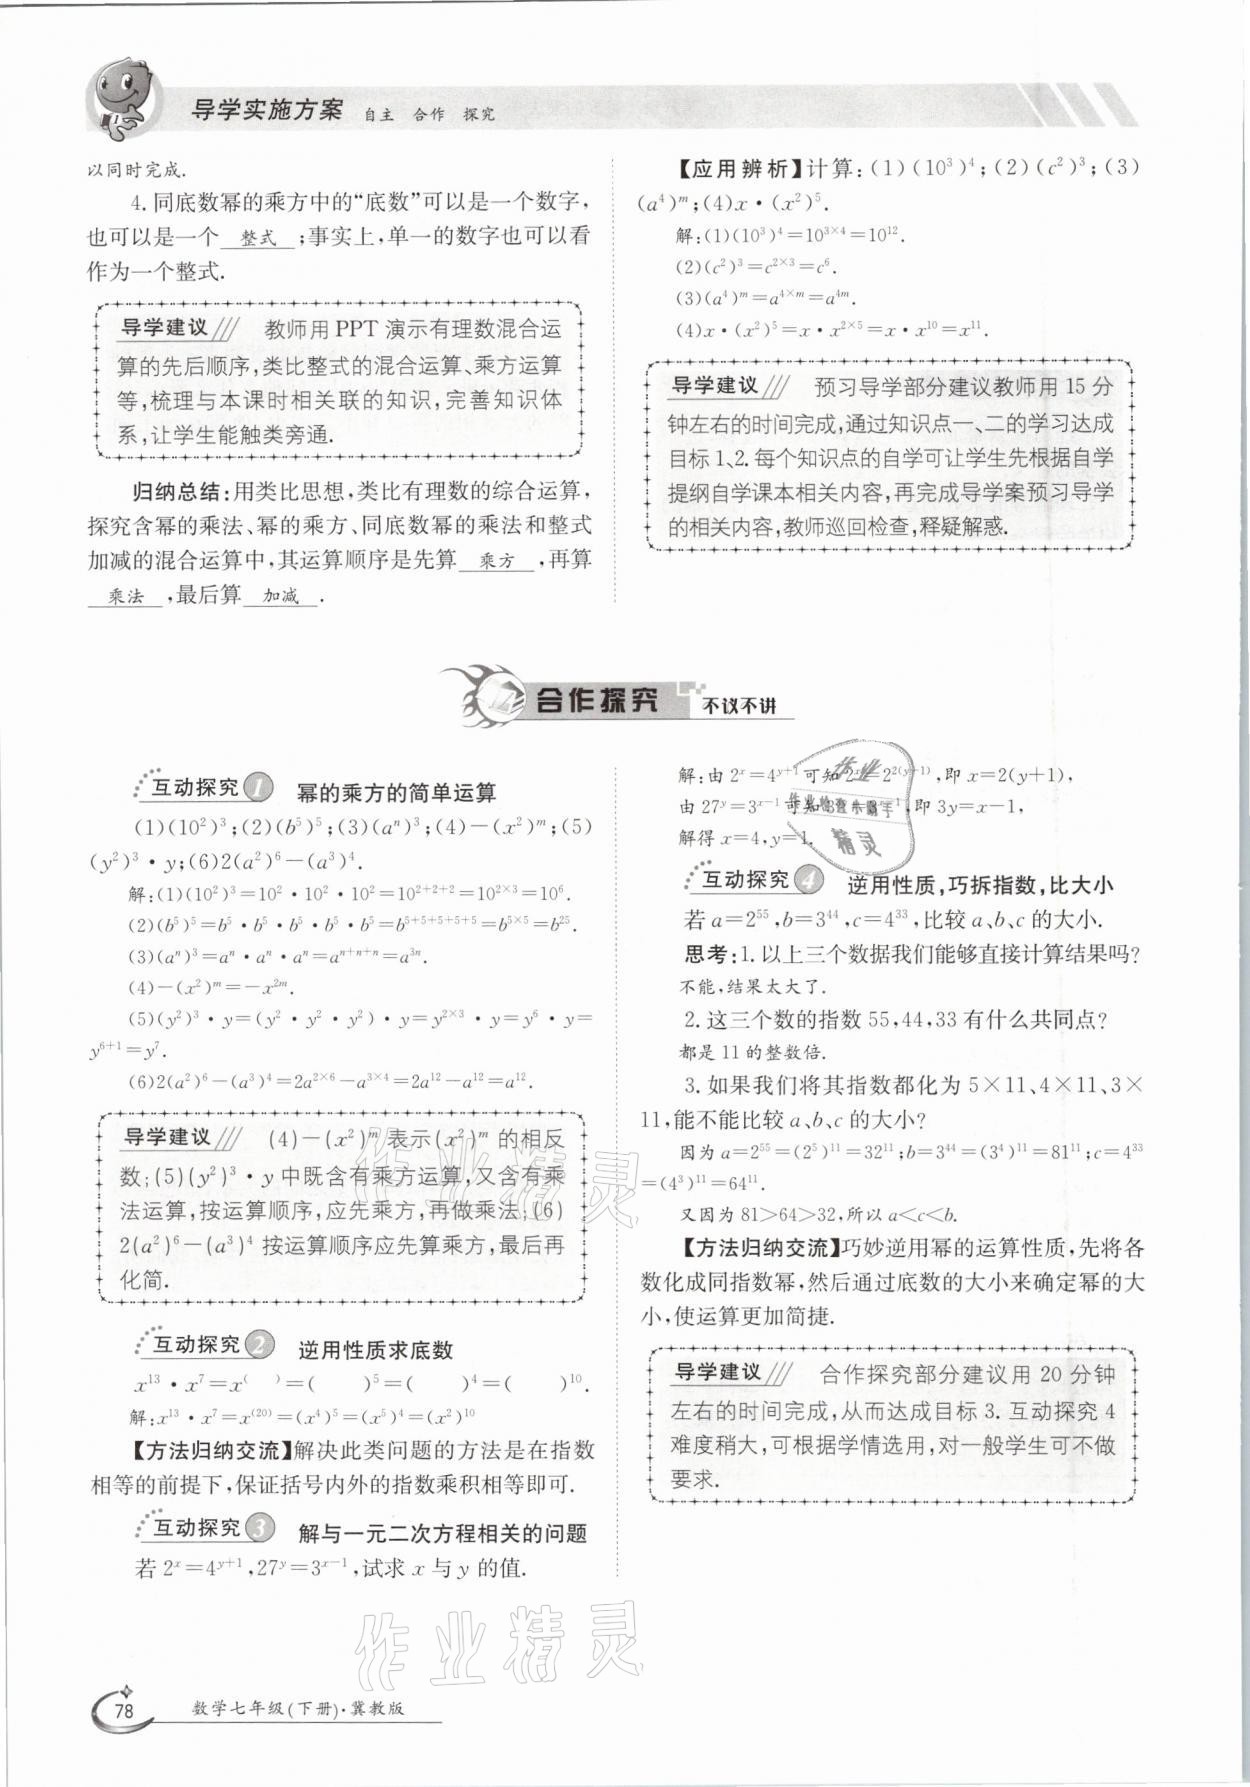 导学实施方案 自主 合作 探究
以同时完成.
4. 同底数幂的乘方中的“底数”可以是一个数字,
也可以是一个 整式 ;事实上,单一的数字也可以看
作为一个整式.
导学建议 教师用 PPT 演示有理数混合运
算的先后顺序,类比整式的混合运算、乘方运算
等,梳理与本课时相关联的知识,完善知识体
系,让学生能触类旁通.
归纳总结:用类比思想,类比有理数的综合运算,
探究含幂的乘法、幂的乘方、同底数幂的乘法和整式
加减的混合运算中,其运算顺序是先算 乘方 ,再算
乘法 ,最后算 加减 .
【应用辨析】计算:(1)(10³)⁴;(2)(c²)³;(3)
(a⁴)ᵐ;(4)x·(x²)⁵.
解:(1)(10³)⁴=10³ˣ⁴=10¹².
(2)(c²)³=c²ˣ³=c⁶.
(3)(a⁴)ᵐ=a⁴ˣᵐ=a⁴ᵐ.
(4)x·(x²)⁵=x·x²ˣ⁵=x·x¹⁰=x¹¹.
导学建议 预习导学部分建议教师用 15 分
钟左右的时间完成,通过知识点一、二的学习达成
目标 1、2. 每个知识点的自学可让学生先根据自学
提纲自学课本相关内容,再完成导学案预习导学
的相关内容,教师巡回检查,释疑解惑.
合作探究 不议不讲
互动探究 1 幂的乘方的简单运算
(1)(10²)³;(2)(b⁵)⁵;(3)(aⁿ)³;(4)-(x²)ᵐ;(5)
(y²)³·y;(6)2(a²)⁶-(a³)⁴.
解:(1)(10²)³=10²·10²·10²=10²⁺²⁺²=10²ˣ³=10⁶.
(2)(b⁵)⁵=b⁵·b⁵·b⁵·b⁵·b⁵=b⁵⁺⁵⁺⁵⁺⁵⁺⁵=b⁵ˣ⁵=b²⁵.
(3)(aⁿ)³=aⁿ·aⁿ·aⁿ=aⁿ⁺ⁿ⁺ⁿ=a³ⁿ.
(4)-(x²)ᵐ=-x²ᵐ.
(5)(y²)³·y=(y²·y²·y²)·y=y²ˣ³·y=y⁶·y=
y⁶⁺¹=y⁷.
(6)2(a²)⁶-(a³)⁴=2a²ˣ⁶-a³ˣ⁴=2a¹²-a¹²=a¹².
导学建议 (4)-(x²)ᵐ 表示(x²)ᵐ 的相反
数;(5)(y²)³·y 中既含有乘方运算,又含有乘
法运算,按运算顺序,应先乘方,再做乘法;(6)
2(a²)⁶-(a³)⁴ 按运算顺序应先算乘方,最后再
化简.
互动探究 2 逆用性质求底数
x¹³·x⁷=x⁽ ⁾=( )⁵=( )⁴=( )¹⁰.
解:x¹³·x⁷=x⁽²⁰⁾=(x⁴)⁵=(x⁵)⁴=(x²)¹⁰
【方法归纳交流】解决此类问题的方法是在指数
相等的前提下,保证括号内外的指数乘积相等即可.
互动探究 3 解与一元二次方程相关的问题
若 2ˣ=4ʸ⁺¹,27ʸ=3ˣ⁻¹,试求 x 与 y 的值.
解:由 2ˣ=4ʸ⁺¹可知 2ˣ=2²⁽ʸ⁺¹⁾,即 x=2(y+1),
由 27ʸ=3ˣ⁻¹可知 ,即 3y=x-1,
解得 x=4,y=1.
互动探究 4 逆用性质,巧拆指数,比大小
若 a=2⁵⁵,b=3⁴⁴,c=4³³,比较 a、b、c 的大小.
思考:1. 以上三个数据我们能够直接计算结果吗?
不能,结果太大了.
2. 这三个数的指数 55,44,33 有什么共同点?
都是 11 的整数倍.
3. 如果我们将其指数都化为 5×11、4×11、3×
11,能不能比较 a、b、c 的大小?
因为 a=2⁵⁵=(2⁵)¹¹=32¹¹;b=3⁴⁴=(3⁴)¹¹=81¹¹;c=4³³
=(4³)¹¹=64¹¹.
又因为 81>64>32,所以 a<c<b.
【方法归纳交流】巧妙逆用幂的运算性质,先将各
数化成同指数幂,然后通过底数的大小来确定幂的大
小,使运算更加简捷.
导学建议 合作探究部分建议用 20 分钟
左右的时间完成,从而达成目标 3. 互动探究 4
难度稍大,可根据学情选用,对一般学生可不做
要求.
作业
作业检查小助手
精灵
作业精灵
作业精灵
78 数学七年级(下册)·冀教版